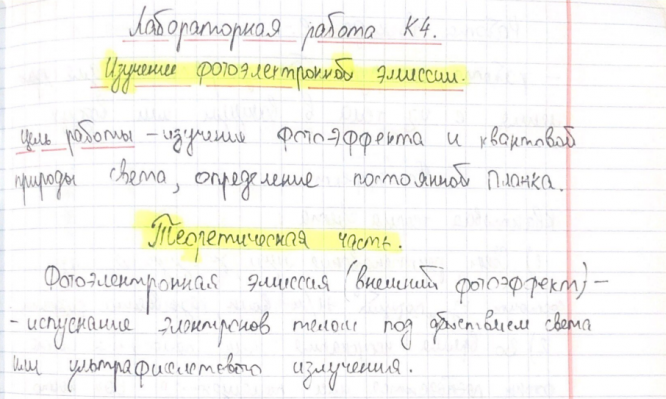 Лабораторная работа К4.
Изучение фотоэлектронной эмиссии.
Цель работы – изучение фотоэффекта и квантовой
природы света, определение постоянной Планка.
Теоретическая часть.
Фотоэлектронная эмиссия (внешний фотоэффект) –
- испускание электронов телом под действием света
или ультрафиолетового излучения.